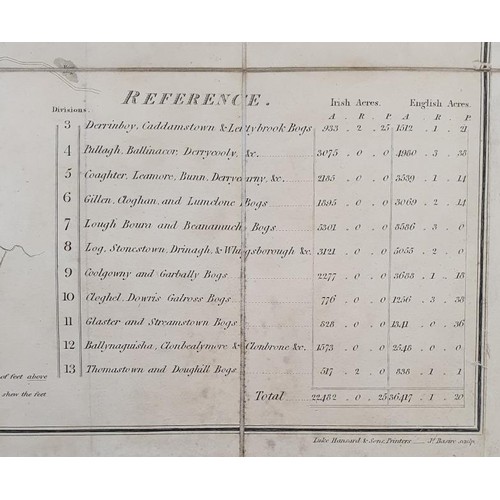 REFERENCE.
Irish Acres. English Acres.
Divisions. A . R . P. A . R . P.
3 Derrinboy, Caddamstown & Bogs 933 . 2 . 25 1512 . 1 . 21
4 Pullagh, Ballinacor, Derrycooly, &c. 3075 . 0 . 0 4980 . 3 . 38
5 Coaghter, Leamore, Bunn, &c. 2185 . 0 . 0 3539 . 1 . 14
6 Gillen, Cloghan, and Lumclone Bogs 1895 . 0 . 0 3069 . 2 . 14
7 Lough Boura and Beanamucky Bogs 5301 . 0 . 0 8586 . 3 . 0
8 Log, Stonestown, Drinagh, & &c. 3121 . 0 . 0 5055 . 2 . 0
9 Coolgowny and Garbally Bogs 2277 . 0 . 0 3688 . 1 . 18
10 Cloghel, Dowris Galross Bogs 776 . 0 . 0 1256 . 3 . 38
11 Glaster and Streamstown Bogs 828 . 0 . 0 1341 . 0 . 36
12 Ballynaguisha, Clonbealymore & Clonbrone &c. 1573 . 0 . 0 2548 . 0 . 0
13 Thomastown and Doughill Bogs 517 . 2 . 0 838 . 1 . 1
of feet above
shew the feet
Total 22482 . 0 . 25 36417 . 1 . 20
Luke Hansard & Sons, Printers Js. Basire sculp.